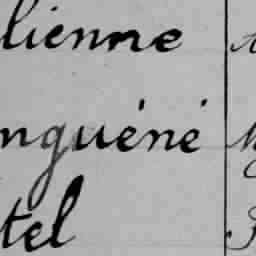 lienne
nguéné
tel